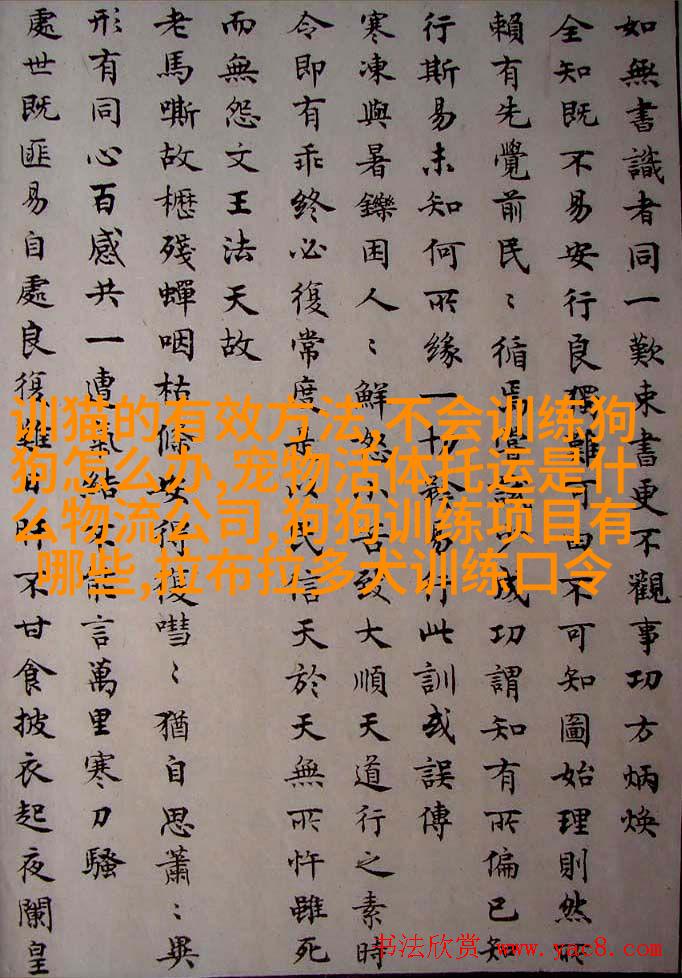 如無書識者同一歎束書更不觀事功方炳煥
全知既不易安行良獨難可由不可知圖始理則然所
賴有先覺前民〻循焉信成功謂知有所偏已知
行斯易未知何所緣一切易行此訓或誤傳
寒凍與暑鑠困人〻鮮怨小致大順天道行之素時
令即有乖終必復常度亦以民信天於天無所忤雖死
而無怨文王法天故
老馬嘶故櫪殘蟬咽枯條安得復嘒〻猶自思蕭〻異
形有同心百感共一遭氣結不能言萬里寒刀騷
處世既匪易自處良復難日旰不甘食披衣起夜闌皇
训猫的有效方法,不会训练狗
狗怎么办,宠物活体托运是什
么物流公司,狗狗训练项目有
哪些,拉布拉多犬训练口令
书法欣赏 www.yac8.com